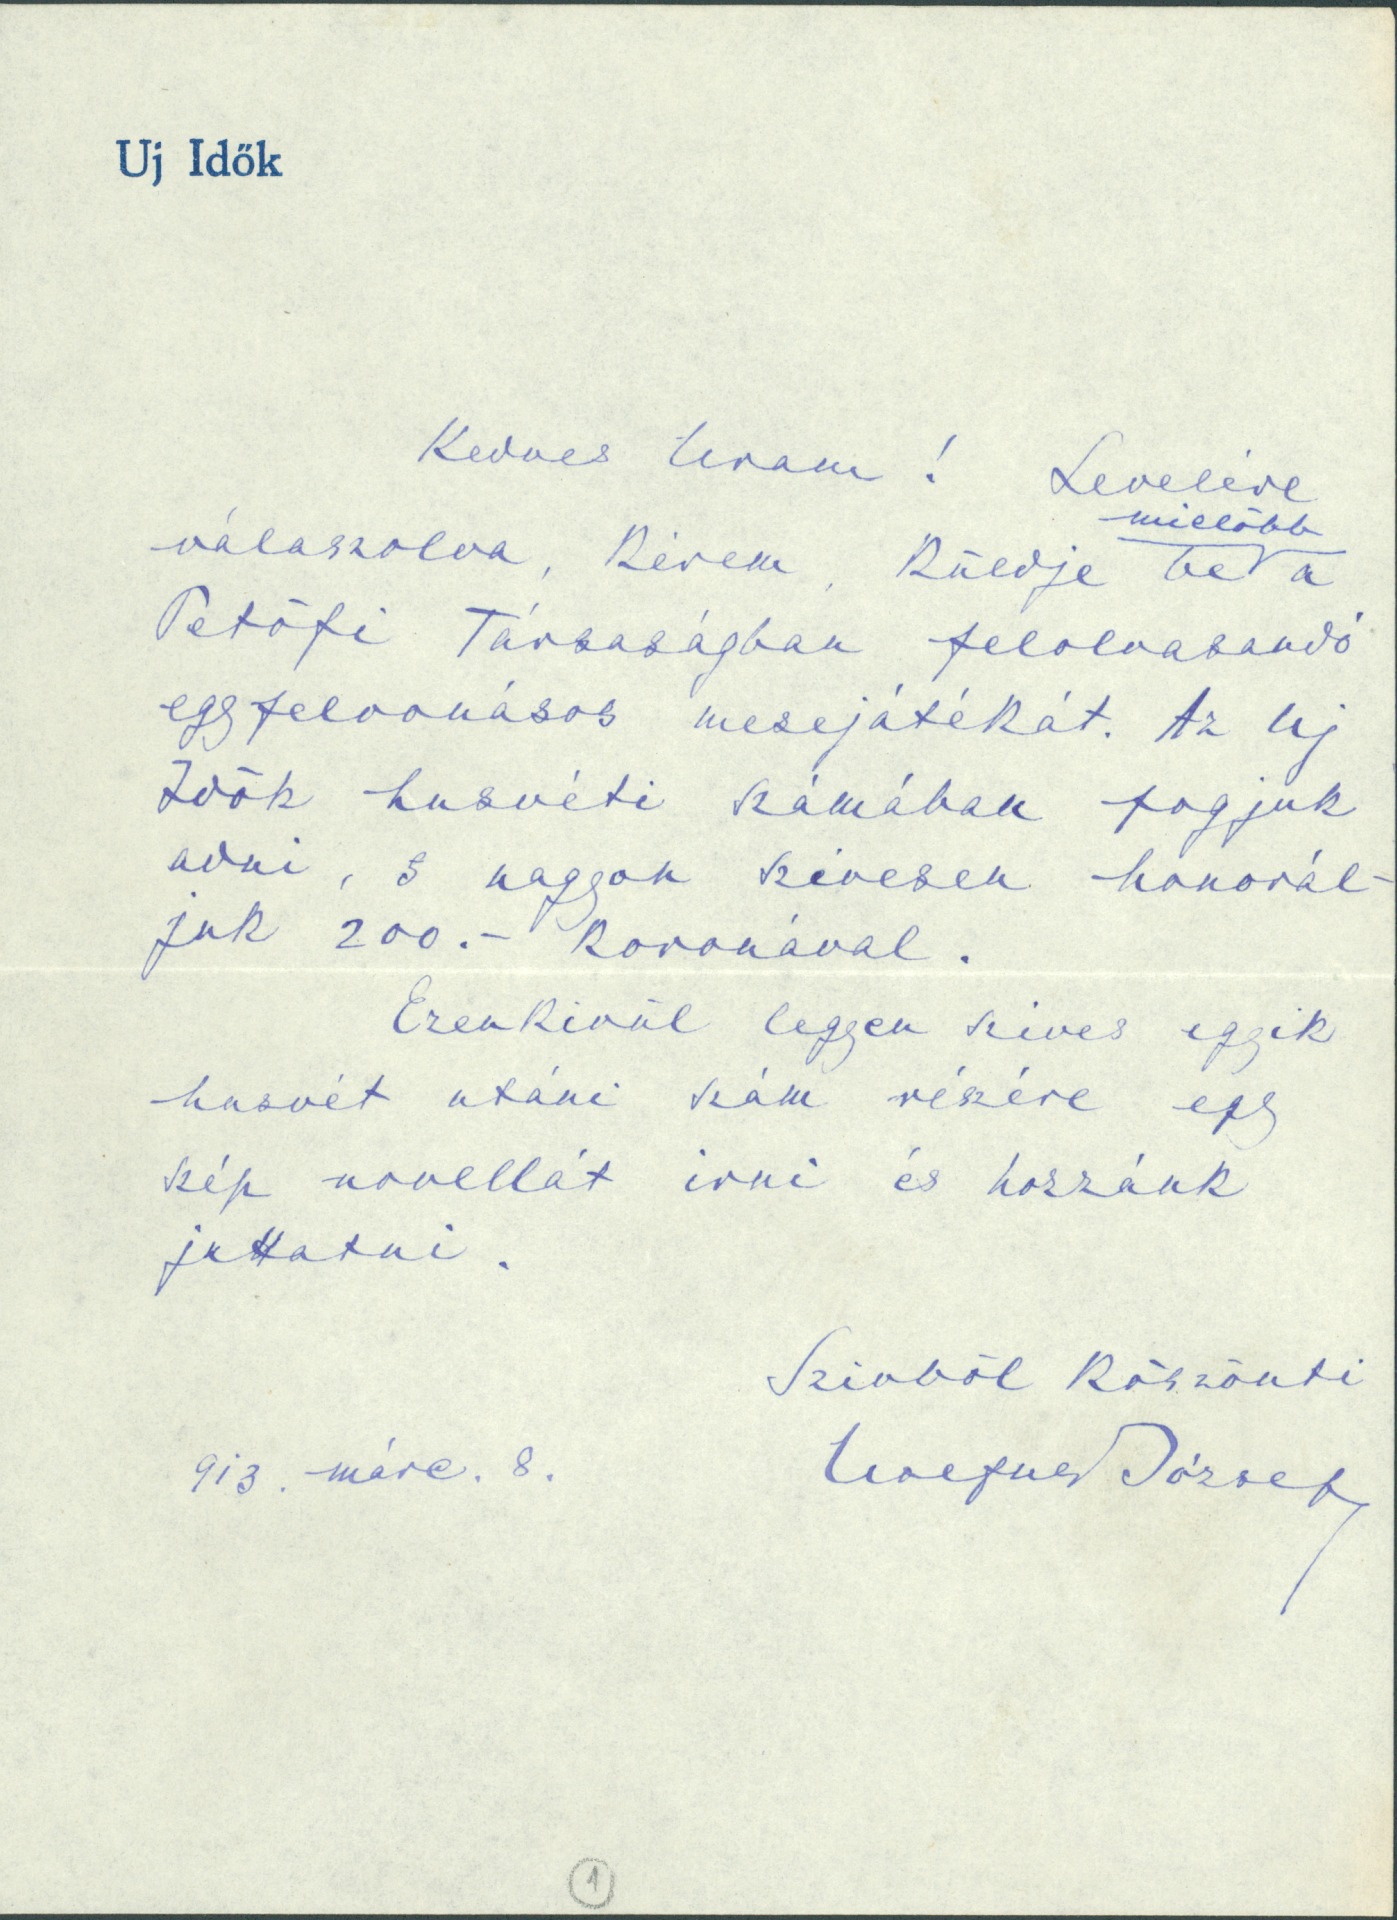 Uj Idők
Kedves Uram! Levelére
mielőbb
válaszolva, kérem, küldje be a
Petőfi Társaságban felolvasandó
egyfelvonásos mesejátékát. Az Uj
Idők husvéti számában fogjuk
adni, s nagyon szivesen honorál-
juk 200.- koronával.
Ezenkivül legyen szives egyik
husvét utáni szám részére egy
szép novellát irni és hozzánk
juttatni.
Szivből köszönti
913. márc. 8.
Wolfner József
1